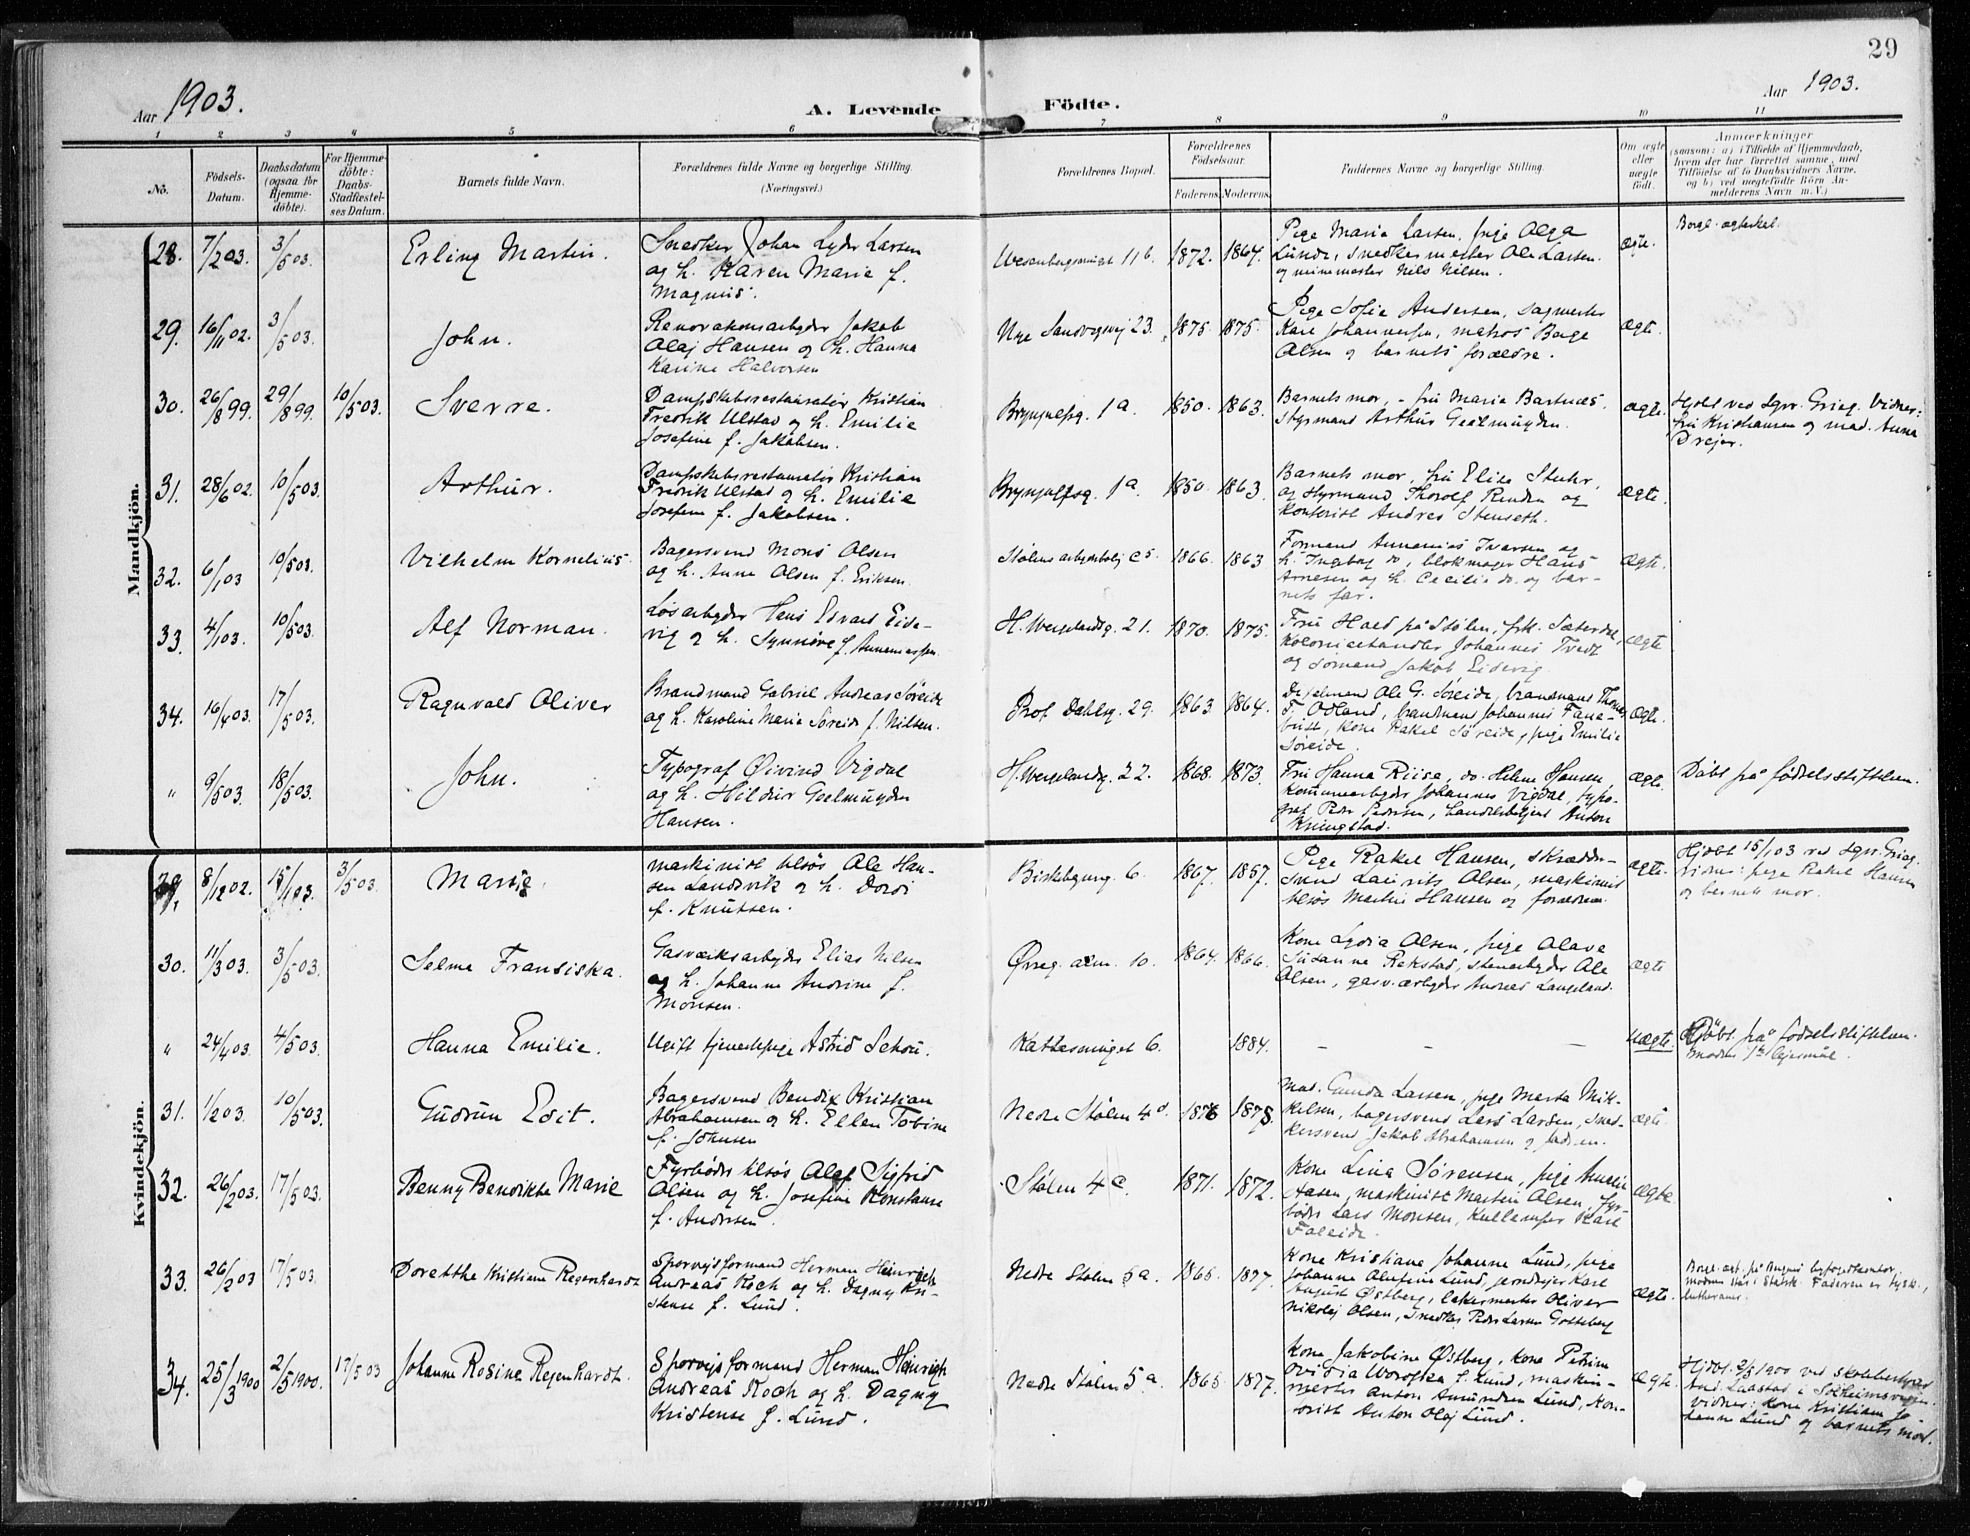 29
Aar 1903.
A. Levende Födte.
Aar 1903.
1 2 3 4 5 6 7 8 9 10 11
No.
Födsels-
Datum.
Daabsdatum
(ogsaa for
Hjemme-
döbte).
For Hjemme-
döbte:
Daabs-
Stadfæstel-
ses Datum.
Barnets fulde Navn.
Forældrenes fulde Navne og borgerlige Stilling.
(Næringsvei.)
Forældrenes Bopæl.
Forældrenes
Födselsaar.
Faderens. Moderens.
Faddernes Navne og borgerlige Stilling.
Om ægte
eller
uægte
födt.
Anmærkninger
(saasom: a) i Tilfælde af Hjemmedaab,
hvem der har forrettet samme, med
Tilföielse af to Daabsvidners Navne,
og b) ved uægtefödte Börn An-
melderens Navn m. V.)
Mandkjön.
28. 7/2 03. 3/5 03. Erling Martin.
Snedker Johan Lyder Larsen
og h. Karen Marie f.
Magnus.
11b. 1872. 1864.
Pige Marie Larsen, pige Olga
Lunde, snedkermester Ole Larsen.
og minemester Nils Nilsen.
ægte.
Borgl. ægteskab.
29. 16/11 02. 3/5 03. John.
Renovationsarbeider Jakob
Olaj Hansen og h. Hanna
Karine Halvorsen
Nye Sandvigsvej 23. 1875. 1875.
Pige Sofie Andersen,
Karl Johannessen, matros Børge
Olsen og barnets forældre.
ægte.
30. 26/8 99. 29/8 99. 10/5 03. Sverre.
Dampskibsrestauratør Kristian
Fredrik Ulstad og h. Emilie
Josefine f. Jakobsen.
1a. 1850. 1863.
Barnets mor, - fru Marie
styrmand Arthur Geelmuyden.
ægte.
Hjdbt ved sgpr. Grieg. Vidner:
fru Kristiansen og mad. Anna
Dreyer.
31. 28/6 02. 10/5 03. Arthur.
Dampskibsrestauratør Kristian
Fredrik Ulstad og h. Emilie
Josefine f. Jakobsen.
1a. 1850. 1863.
Barnets mor, fru Elise Stuhr,
og styrmand Thorolf Rinden og
kontorist Andres Stenseth.
ægte.
32. 6/1 03 10/5 03. Vilhelm Kornelius.
Bagersvend Mons Olsen
og h. Anne Olsen f. Eriksen.
Stølens arbeiderbolig C 5. 1866. 1863
Formand Annanias Ivarsen og
h. Ingeborg do, blokmager Hans
Arnesen og h. Cecilie do. og bar-
nets far.
ægte.
33. 4/1 03. 10/5 03. Alf Norman.
Løsarbeyder Hans Edvard Eide-
vig og h. Synnøve f. Annaniassen.
H. Wergelandsg. 21. 1870. 1875.
Fru Hald på Stølen, frk. Sæterdal,
Kolonialhandler Johannes Tvedt
og sømand Jakob Eidevig.
ægte
34. 16/4 03. 17/5 03. Ragnvald Oliver
Brandmand Gabriel Andreas Søreide
og h. Karoline Marie Søreide f. Nilsen.
Prof Dahlsg. 29. 1863. 1864.
Ole G. Søreide, brandmand Thomas
T. Odland, brandmand Johannes Fane-
bust, kone Rakel Søreide, pige Emilie
Søreide.
ægte.
" 9/5 03. 18/5 03. John.
Typograf Øivind Vigdal
og h. Hildur Geelmuyden
Hansen.
H. Wergelandsg. 22. 1868. 1873.
Fru Hanna Riise, do. Helene Hansen,
Johannes Vigdal, typo-
graf Peder Pedersen, handelsbetjent Anton
Kringstad.
ægte.
Døbt på fødselsstiftelsen.
Kvindekjön.
29. 8/12 02. 15/1 03. 3/5 03. Marie.
Maskinist hlsøs Ole Han-
sen Landsvik og h. Dordi
f. Knutsen.
6. 1867. 1857.
Pige Rakel Hansen, skrædder-
svend Laurits Olsen, maskinist
hlsøs Martin Hansen og forældrene.
ægte.
Hjdbt 15/1 03 ved sgpr. Grieg.
Vidner: pige Rakel Hansen
og barnets mor.
30. 11/3 03. 3/5 03. Selma Fransiska.
Gasværksarbejder Elias Nilsen
og h. Johanne Andrine f.
Monsen.
Øvreg. alm. 10. 1864. 1866.
Kone Lydia Olsen, pige Olava
Susanne Rekstad, stenarbejder Ole
Olsen, gasv.arbejder Andreas Langeland.
ægte
" 24/4 03. 4/5 03. Hanna Emilie.
Ugift tjenestepige Astrid Schou.
Kattesmuget 6. 1884.
– – –
uægte.
Døbt på fødselsstiftelsen.
Modrens 1ste lejermål.
31. 1/2 03. 10/5 03. Gudrun Edit.
Bagersvend Bendix Kristian
Abrahamsen og h. Ellen Tobine
f. Johnsen
Nedre Stølen 4d. 1876 1878.
Mad. Gunda Larsen, pige Marta Mik-
kelsen, bagersvend Lars Larsen, sned-
kersvend Jakob Abrahamsen og fadren.
ægte.
32. 26/2 03. 17/5 03. Benny Bendikte Marie
Fyrbøder hlsøs Olaf Sigfrid
Olsen og h. Josefine Konstanse
f. Andersen.
Stølen 4c. 1871. 1872.
Kone Lina Sørensen, pige
Aasen, maskinist Martin Olsen, fyr-
bøder Lars Monsen, kullemper Karl
Faleide.
ægte
33. 26/2 03 17/5 03. Dorethe Kristiane Regenhardt
Sporvejsformand Herman Heinrich
Andreas Koch og h. Dagny Kri-
stense f. Lund.
Nedre Stølen 5a. 1865. 1877.
Kone Kristiane Johanne Lund, pige
Johanne Olufine Lund, Karl
August Østberg, bakermester Oliver
Nikolaj Olsen, snedker Peder Larsen Gotteberg
ægte.
Borgl. ægt. på Bergens byfogedkontor,
modren står i Statsk. Faderen er tysk
lutheraner.
34. 25/3 1900 2/5 1900. 17/5 03 Johanne Rosine Regenhardt.
Sporvejsformand Herman Heinrich
Andreas Koch og h. Dagny
Kristense f. Lund.
Nedre Stølen 5a. 1865 1877.
Kone Jakobine Østberg, kone Petrine
Ovidia h. Lund, maskin-
mester Anton Amundsen Lund, kon-
torist Anton Olaj Lund.
ægte.
Hjdbt. 2/5 1900 ved skolebestyrer
And. Laastad i Solheimsvigen.
Vidner: kone Kristiane Jo-
hanne Lund og barnets mor.